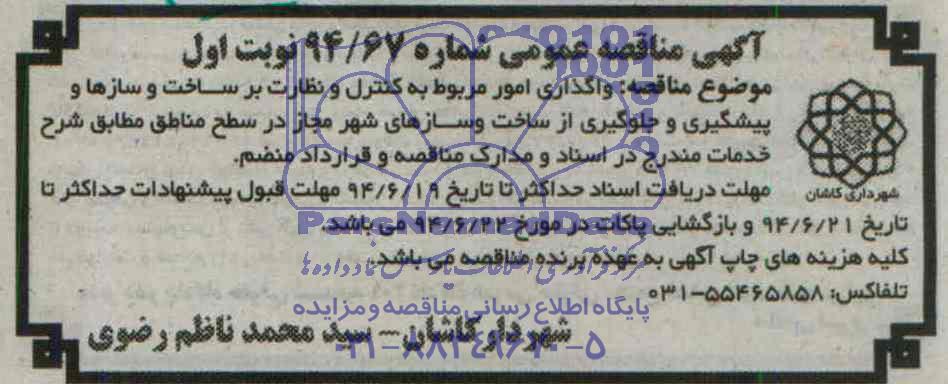 آگهی مناقصه عمومی شماره ۹۴/۶۷ نوبت اول
موضوع مناقصه: واگذاری امور مربوط به کنترل و نظارت بر ساخت و سازها و
پیشگیری و جلوگیری از ساخت وسازهای شهر مجاز در سطح مناطق مطابق شرح
خدمات مندرج در اسناد و مدارک مناقصه و قرارداد منضم.
شهرداری کاشان
مهلت دریافت اسناد حداکثر تا تاریخ ۹۴/۶/۱۹ مهلت قبول پیشنهادات حداکثر تا
تاریخ ۹۴/۶/۲۱ و بازگشایی پاکات در مورخ ۹۴/۶/۲۲ می باشد.
ParsNamadData
کلیه هزینه های چاپ آگهی به عهده برنده مناقصه می باشد.
تلفاکس: ۵۵۴۶۵۸۵۸-۰۳۱
پایگاه اطلاع رسانی مناقصه و مزایده
شهردار کاشان – سید محمد ناظم رضوی
۰۲۱-۸۸۳۴۹۶۷۰-۵